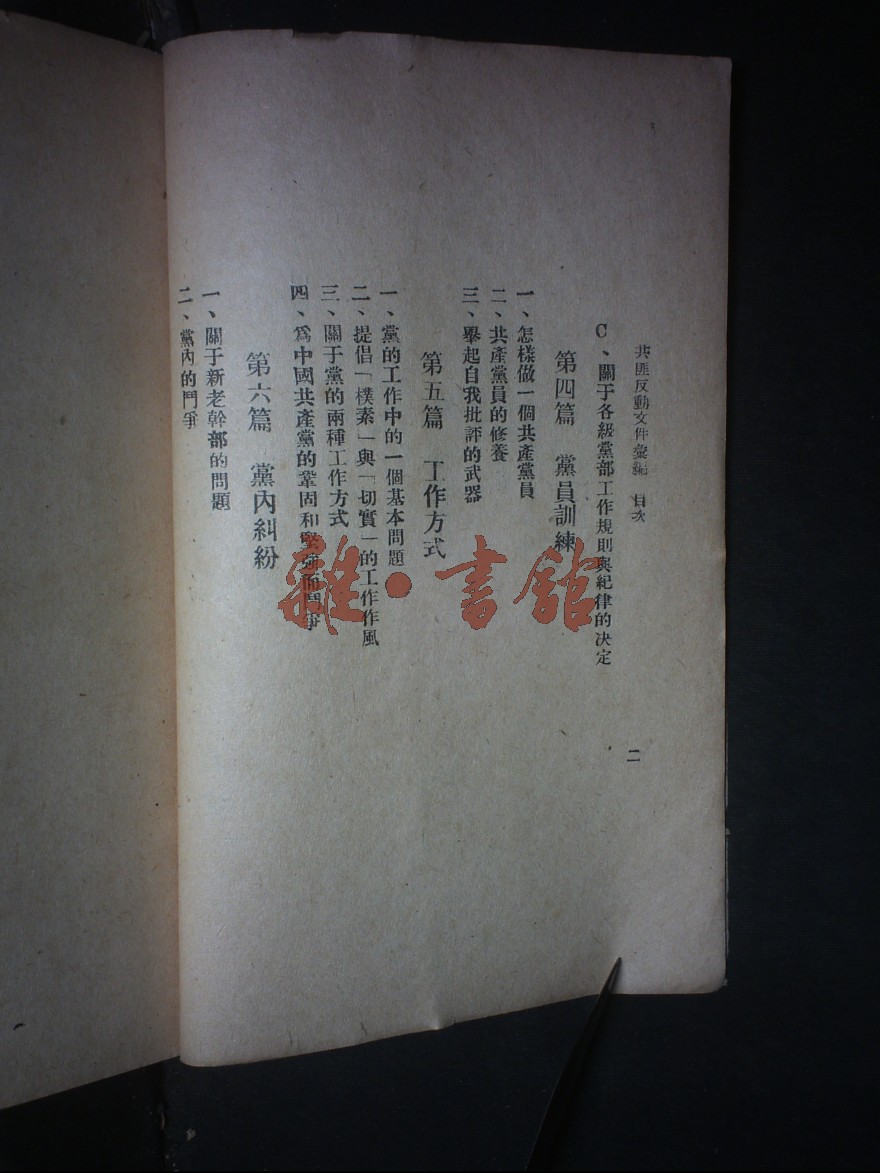 共匪反動文件彙編　目次
二
C、關于各級黨部工作規則與紀律的決定
第四篇　黨員訓練
一、怎樣做一個共產黨員
二、共產黨員的修養
三、舉起自我批評的武器
第五篇　工作方式
一、黨的工作中的一個基本問題
二、提倡「樸素」與「切實」的工作作風
三、關于黨的兩種工作方式
四、爲中國共產黨的鞏固和堅強而鬥爭
第六篇　黨內糾紛
一、關于新老幹部的問題
二、黨內的鬥爭
雜·書館